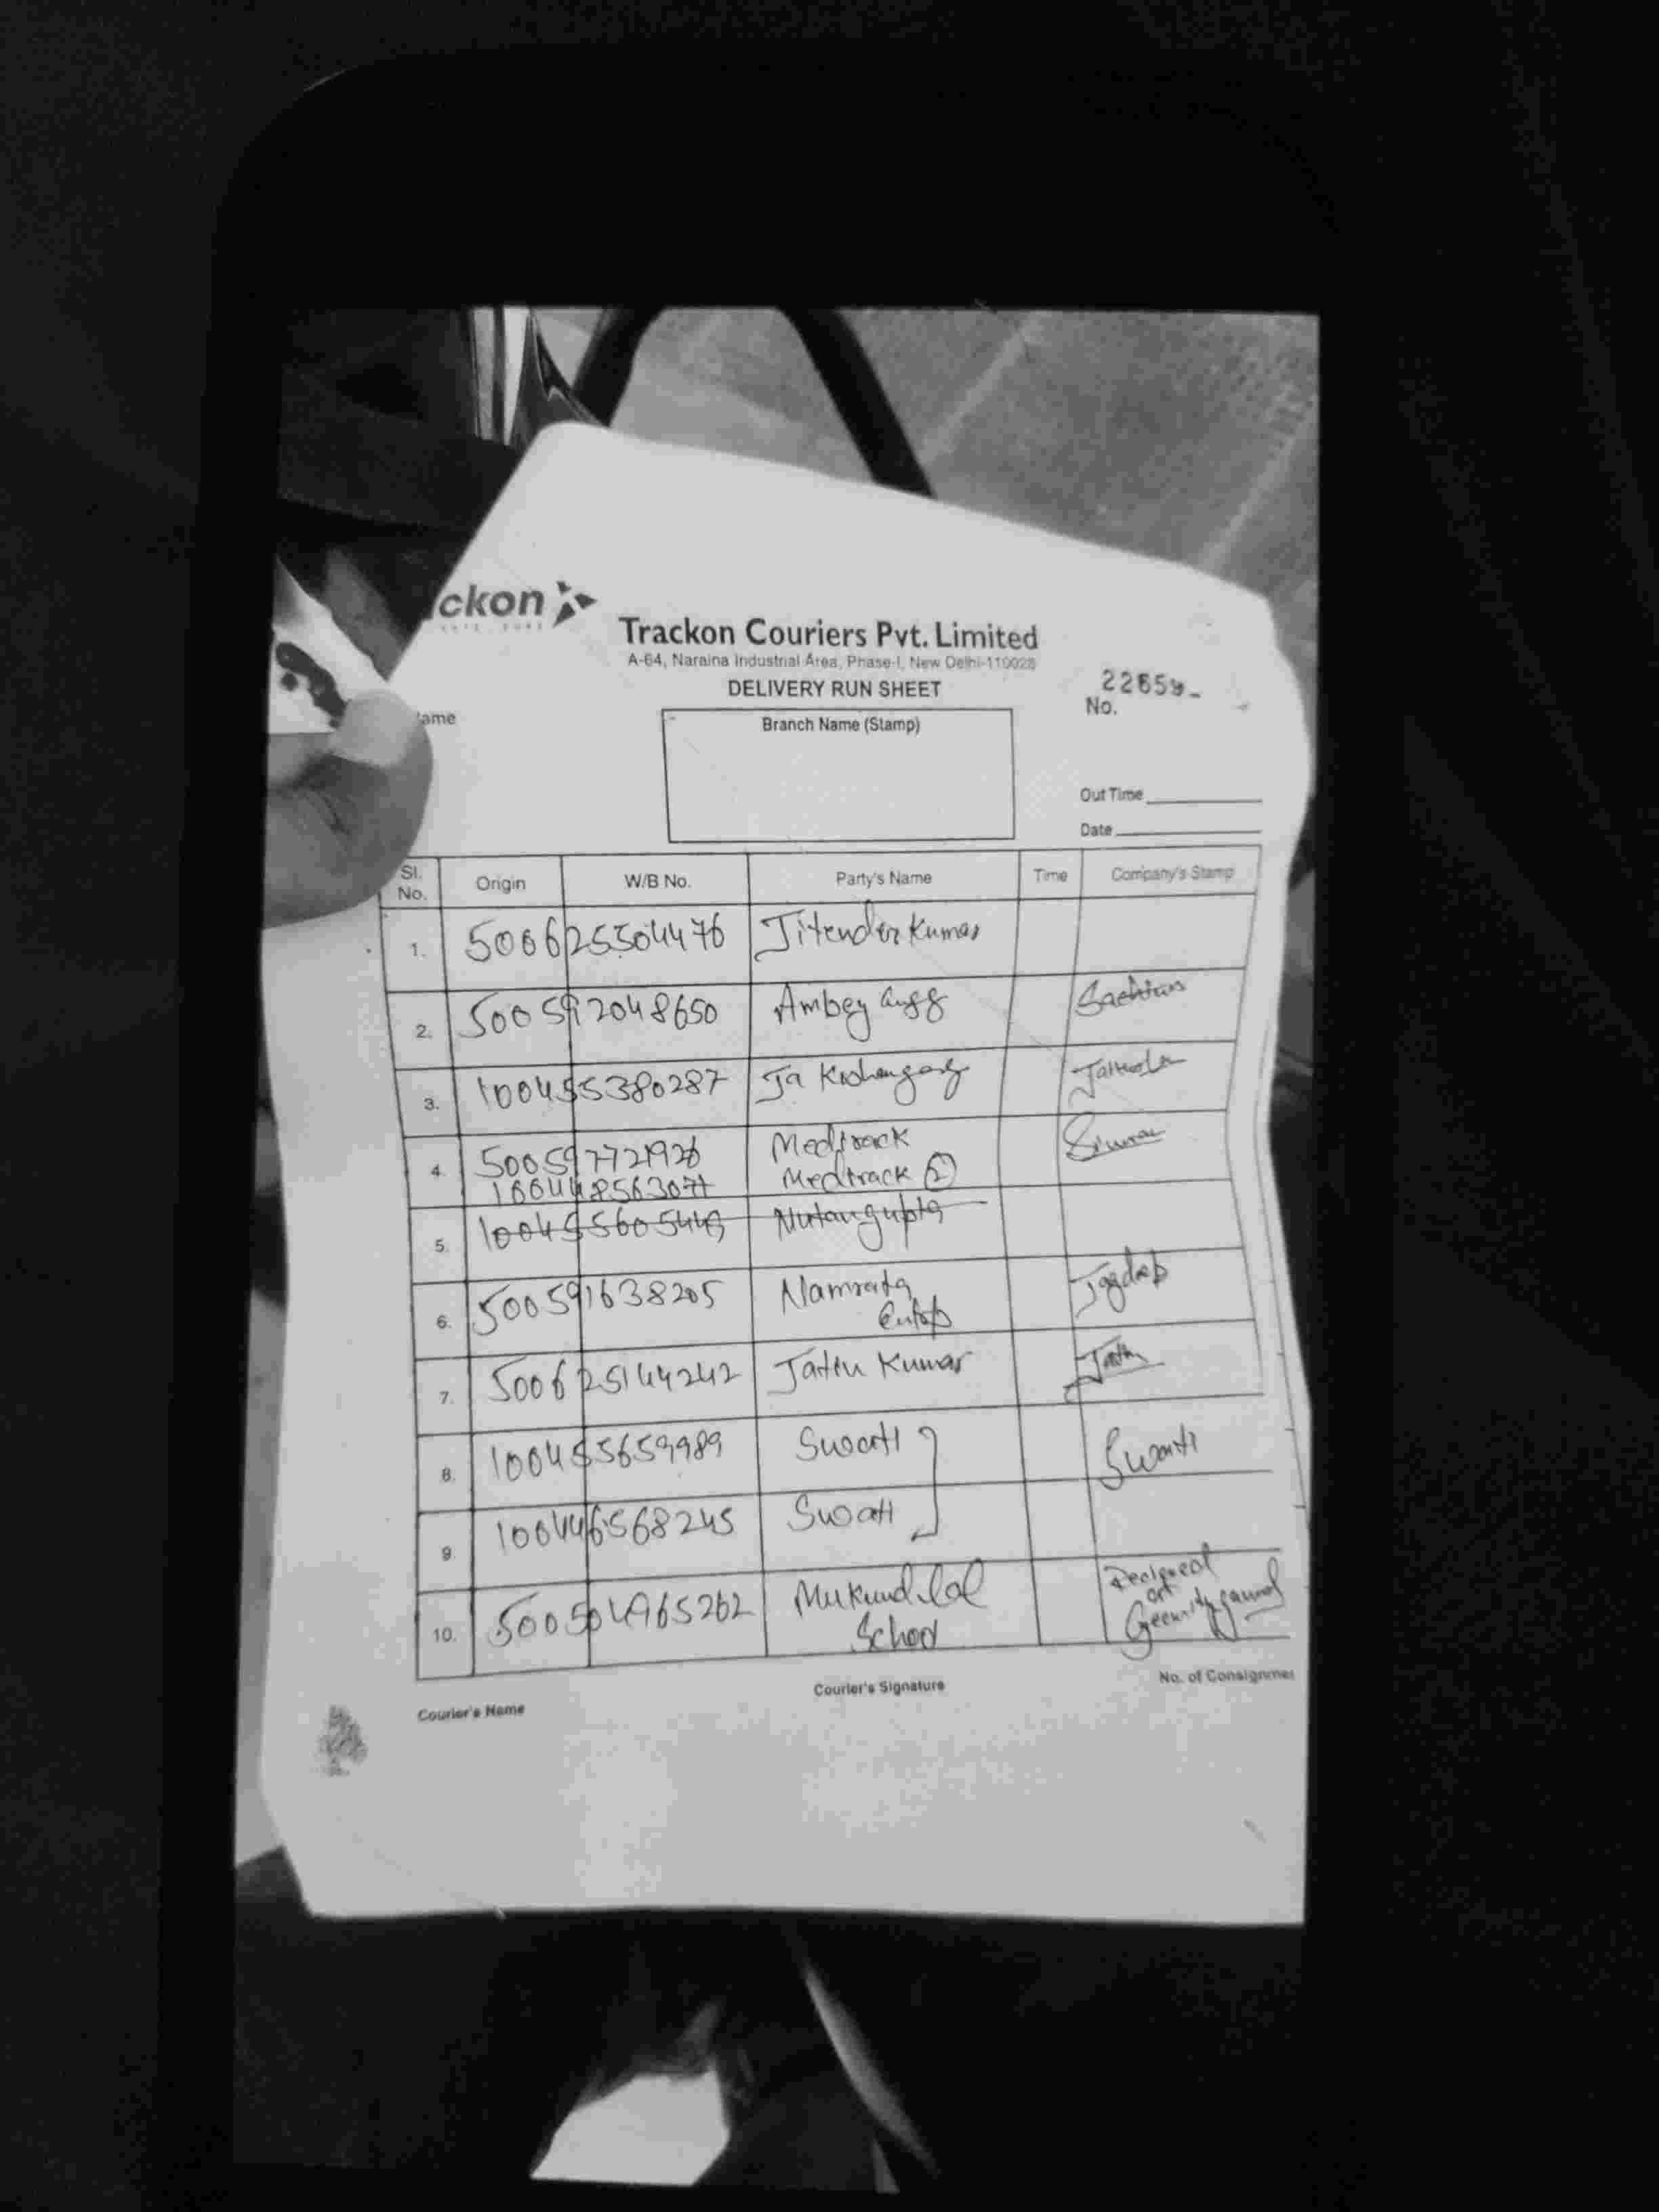 ckon
Trackon Couriers Pvt. Limited
A-64, Naraina Industrial Area, Phase-I, New Delhi-110028
DELIVERY RUN SHEET
No.
ame
Branch Name (Stamp)
Out Time
Date
Sl. No. Origin W/B No. Party's Name Time Company's Stamp
1. 500625504476 Jitender Kumar
2. 500592048650 Ambey
3. 100455380287 Ja
4. 500597721926 Medtrack
100448563077 Medtrack 2
5. 100455605449 Nutan gupta
6. 500591638205 Namrata Jagdeb
7. 500625144242 Jatin Kumar Jatin
8. 100455659989 Swati Swati
9. 100446568245 Swati
10. 500504965262 Mukund lal
School
Courier's Name Courier's Signature No. of Consignmer